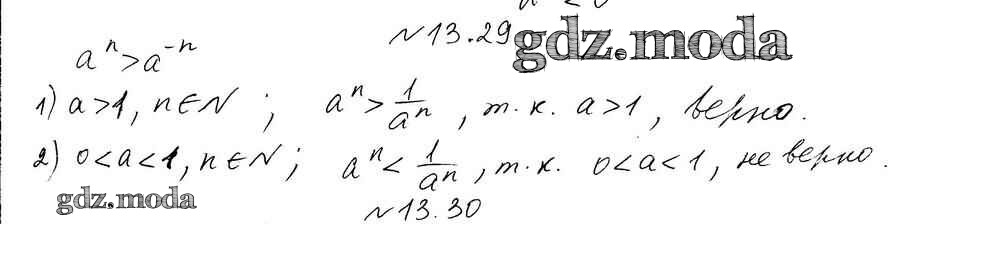 №13.29 gdz.moda
aⁿ > a⁻ⁿ
1) a>1, n∈N ; aⁿ > 1/aⁿ , т.к. a>1, верно.
2) 0<a<1, n∈N ; aⁿ < 1/aⁿ , т.к. 0<a<1, не верно.
gdz.moda
№13.30